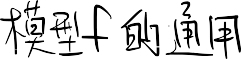 模型f的通用